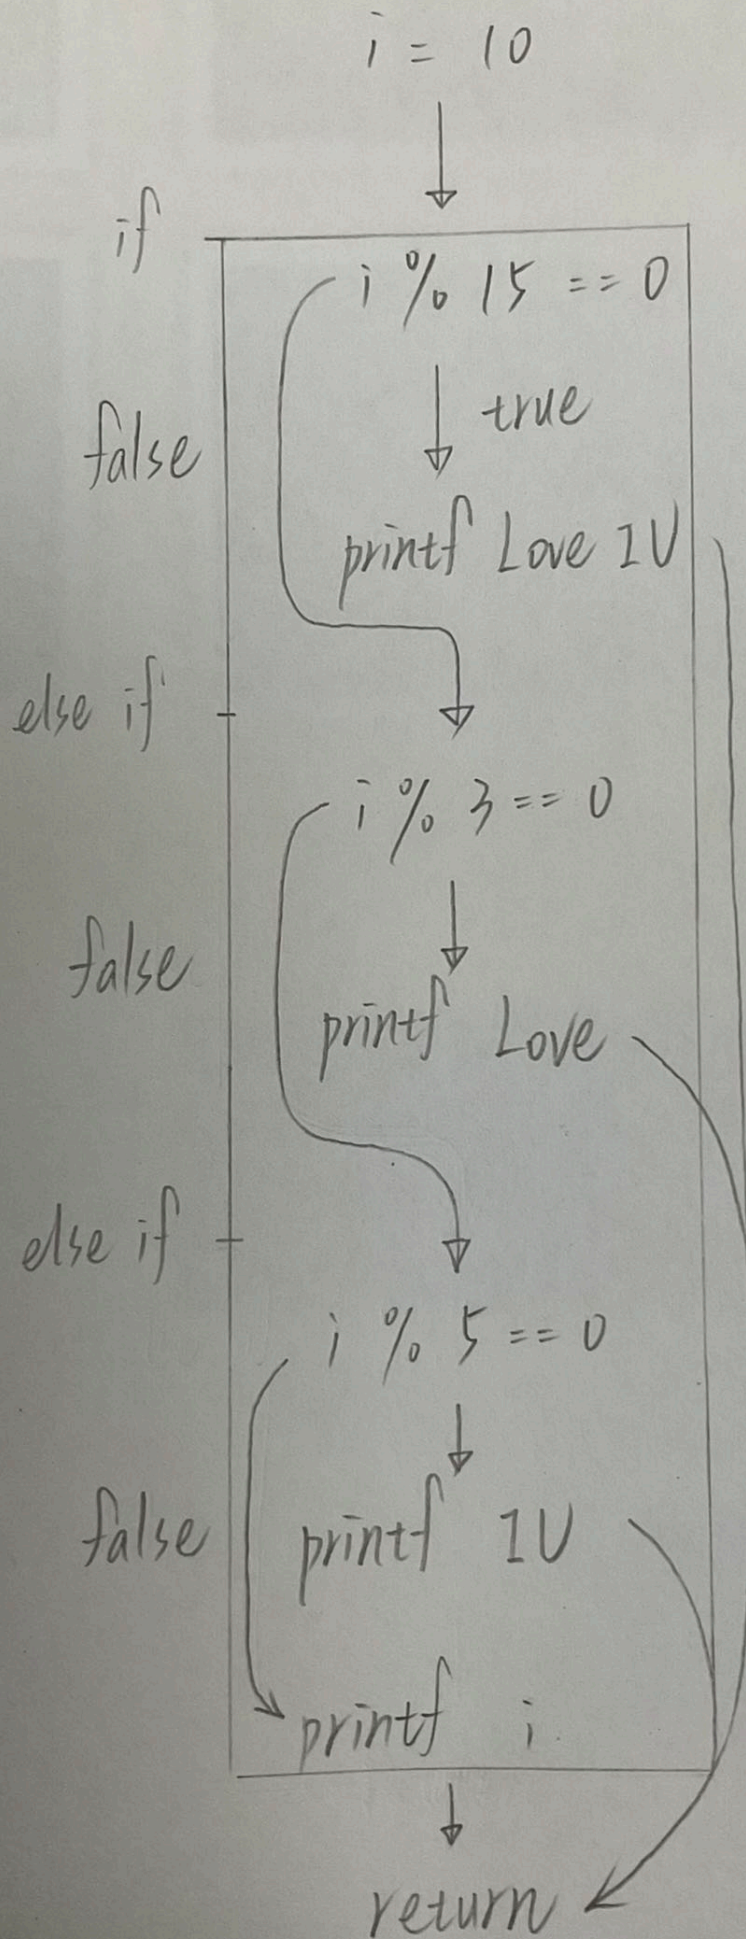 i = 10
if
i % 15 == 0
true
false
printf Love IU
else if
i % 3 == 0
false
printf Love
else if
i % 5 == 0
false
printf IU
printf i
return